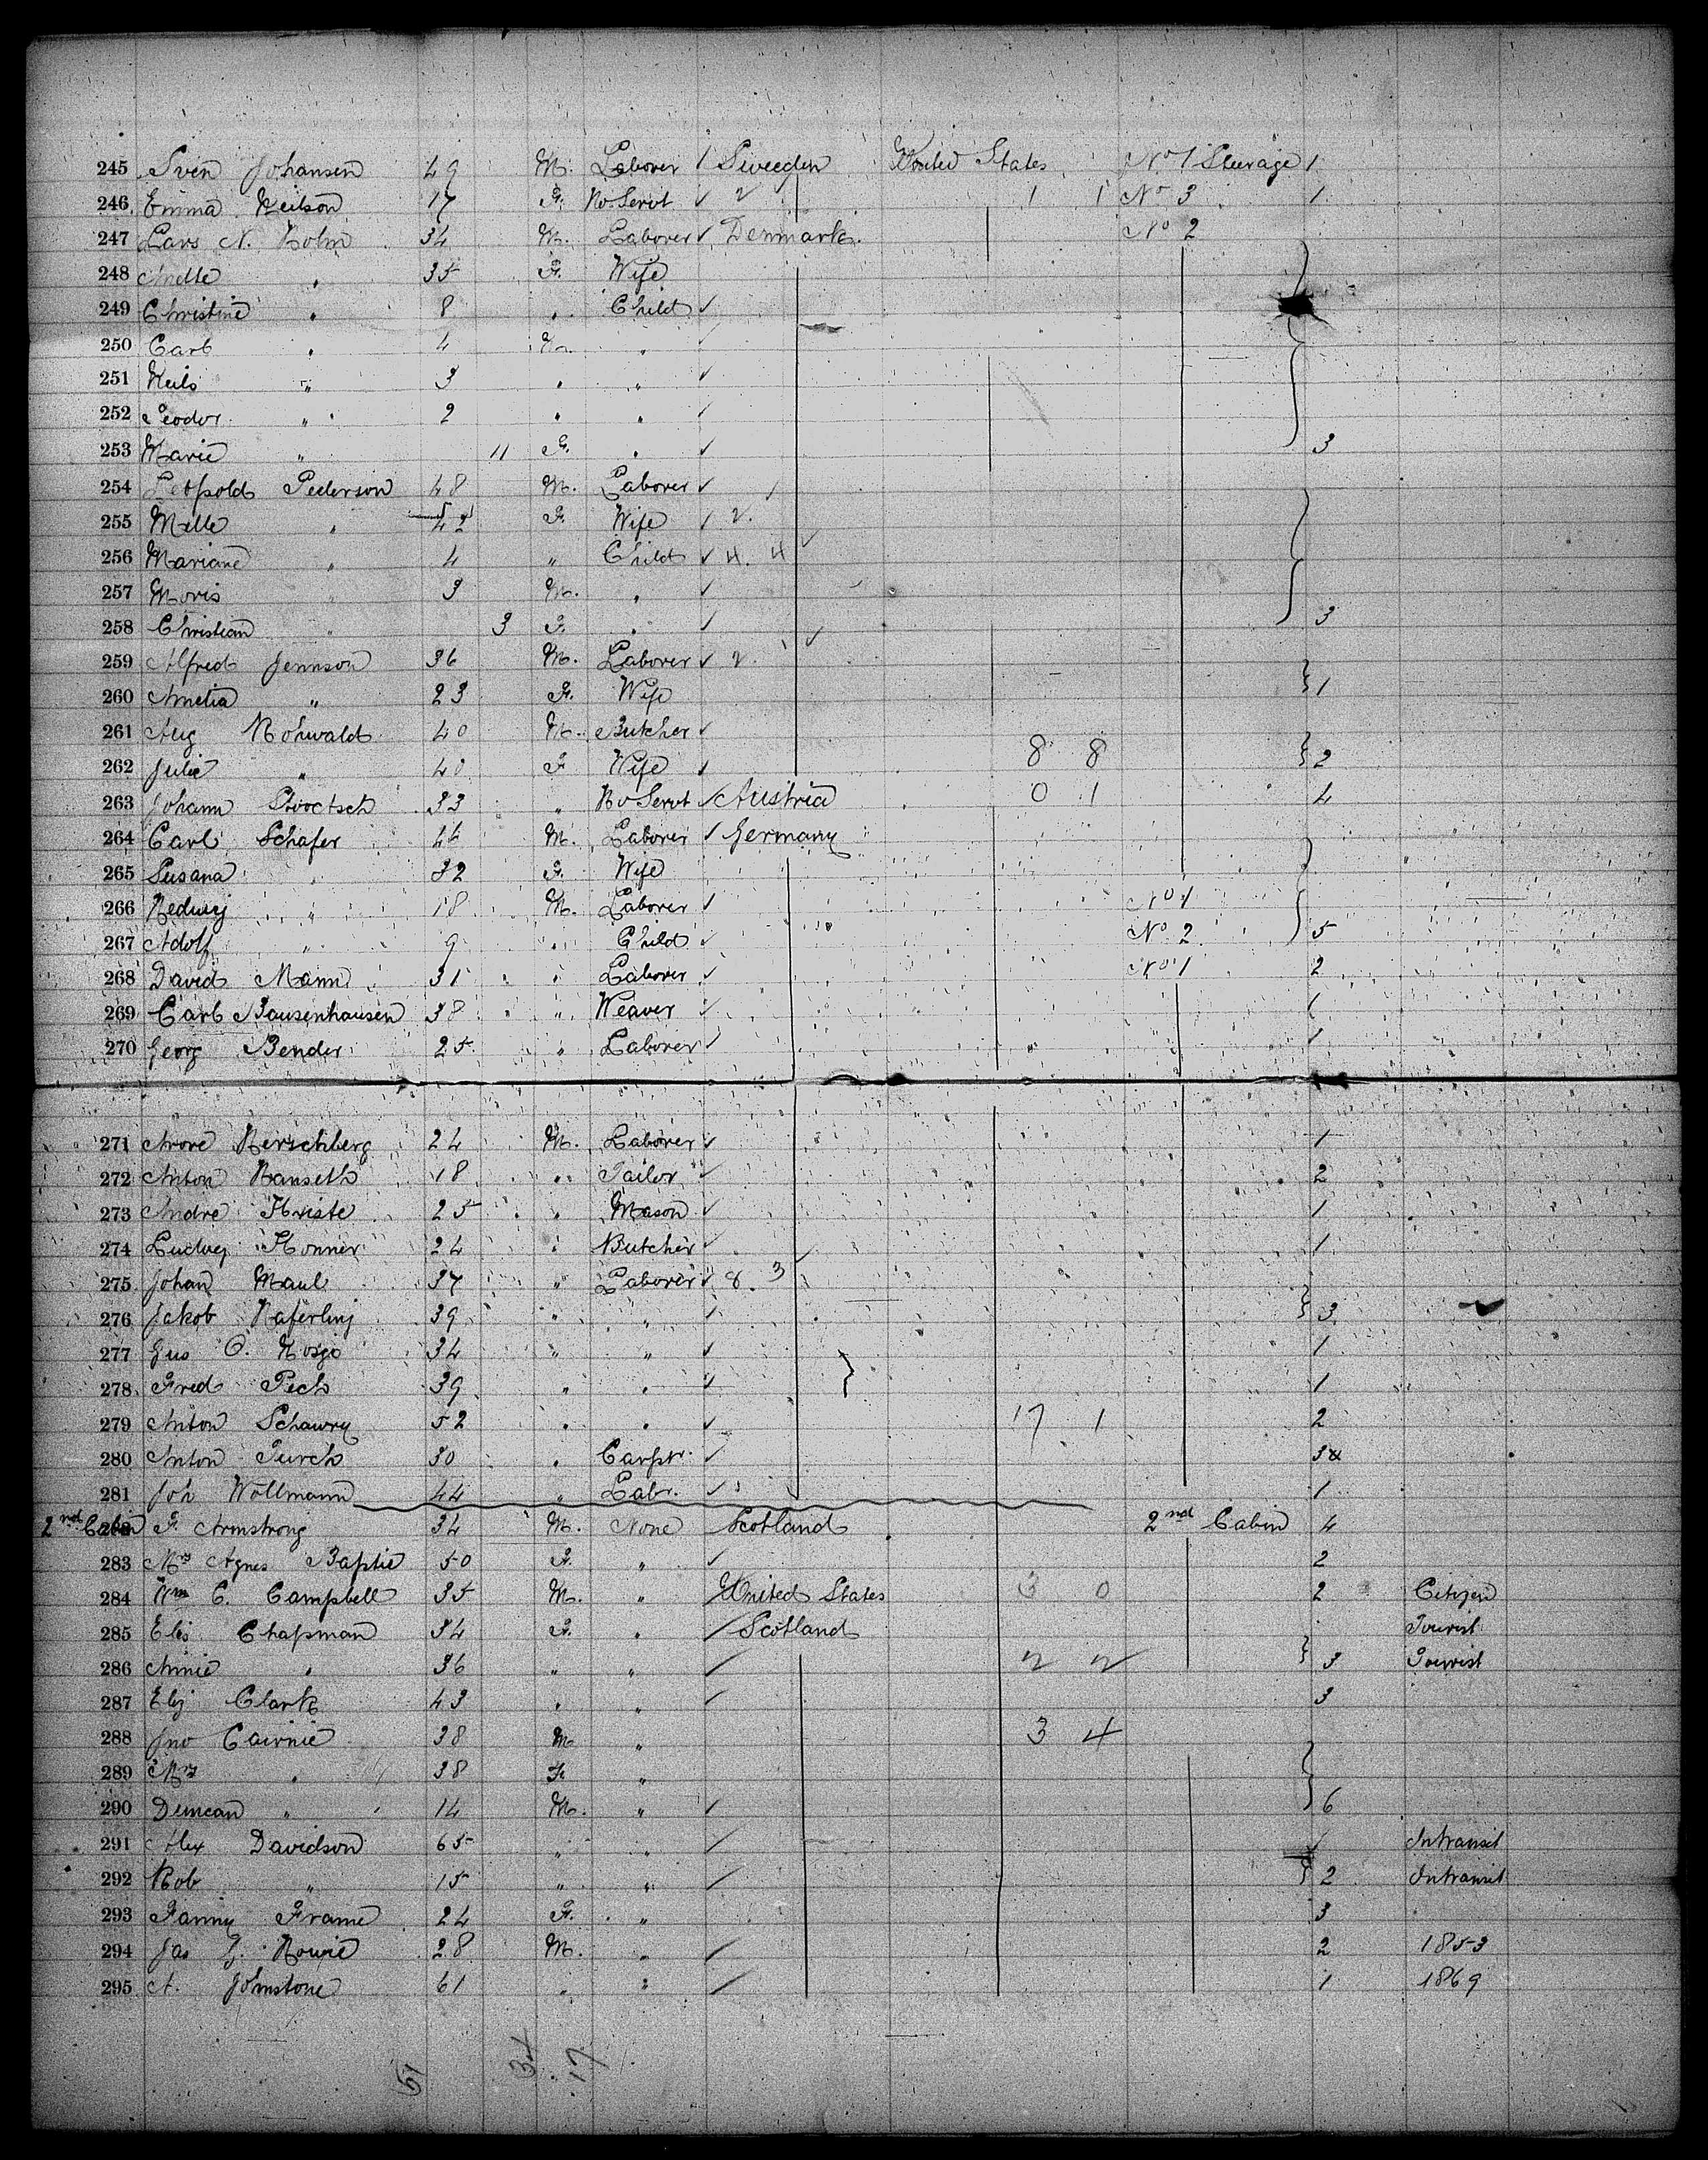 245 Sven Johansen 49 M. Laborer Sweeden United States No 1 Steerage 1
246 Emma Neilson 17 F. No Servt 1 1 No 3 1
247 Lars N. Holm 34 M. Laborer Denmark No 2
248 Mette " 35 F. Wife
249 Christine " 8 " Child
250 Carl " 4 M. "
251 Neils " 3 " "
252 Peodor " 2 " "
253 Marie " 11 F. " 3
254 Leopold Pederson 48 M. Laborer
255 Mette " 42 F. Wife 2.
256 Mariane " 4 " Child 4. 4
257 Moris " 3 M. "
258 Christian " 3 F. " 3
259 Alfred Jennson 36 M. Laborer 2.
260 Amelia " 23 F. Wife 1
261 Aug Rohwald 40 M. Butcher
262 Julie " 40 F Wife 8 8 2
263 Johann 33 " No Servt Austria 0 1 4
264 Carl Schafer 44 M. Laborer Germany
265 Susana " 32 F. Wife
266 Hedwig " 18 M. Laborer No 1
267 Adolf " 9 " Child No 2 5
268 David Mann 31 " Laborer No 1 2
269 Carl Bausenhausen 38 " Weaver 1
270 Georg Bender 25 " Laborer 1
271 Herschberg 24 M. Laborer 1
272 Anton Hanseth 18 " Tailor 2
273 Andre Hriste 25 " Mason 1
274 Ludwig Honner 24 " Butcher 1
275 Johan Maul 37 " Laborer 8. 3
276 Jakob Haferling 39 " " 3
277 Gus O. 34 " " 1
278 Fred Pech 39 " " 1
279 Anton Schawry 52 " " 17 1 2
280 Anton Turek 30 " Carptr. 3
281 Joh Wollmann 44 " Labr. 1
2nd Cabin F. Armstrong 34 M. None Scotland 2nd Cabin 4
283 Mrs Agnes Baptie 50 F. " 2
284 Wm C. Campbell 35 M. " United States 3 0 2 Citizen
285 Elis Chapman 34 F. " Scotland Tourist
286 Annie " 36 " " 2 2 3 Tourist
287 Eliz Clark 43 " " 3
288 Jno Cairnie 38 M " 3 4
289 Mrs " 38 F. "
290 Duncan " 14 M. " 6
291 Alex Davidson 65 " " Intransit
292 Rob " 15 " " 2 Intransit
293 Fanny Frame 24 F. " 3
294 Jas G. Howie 28 M. " 2 1853
295 A. Johnstone 61 " " 1 1869
51 34 17